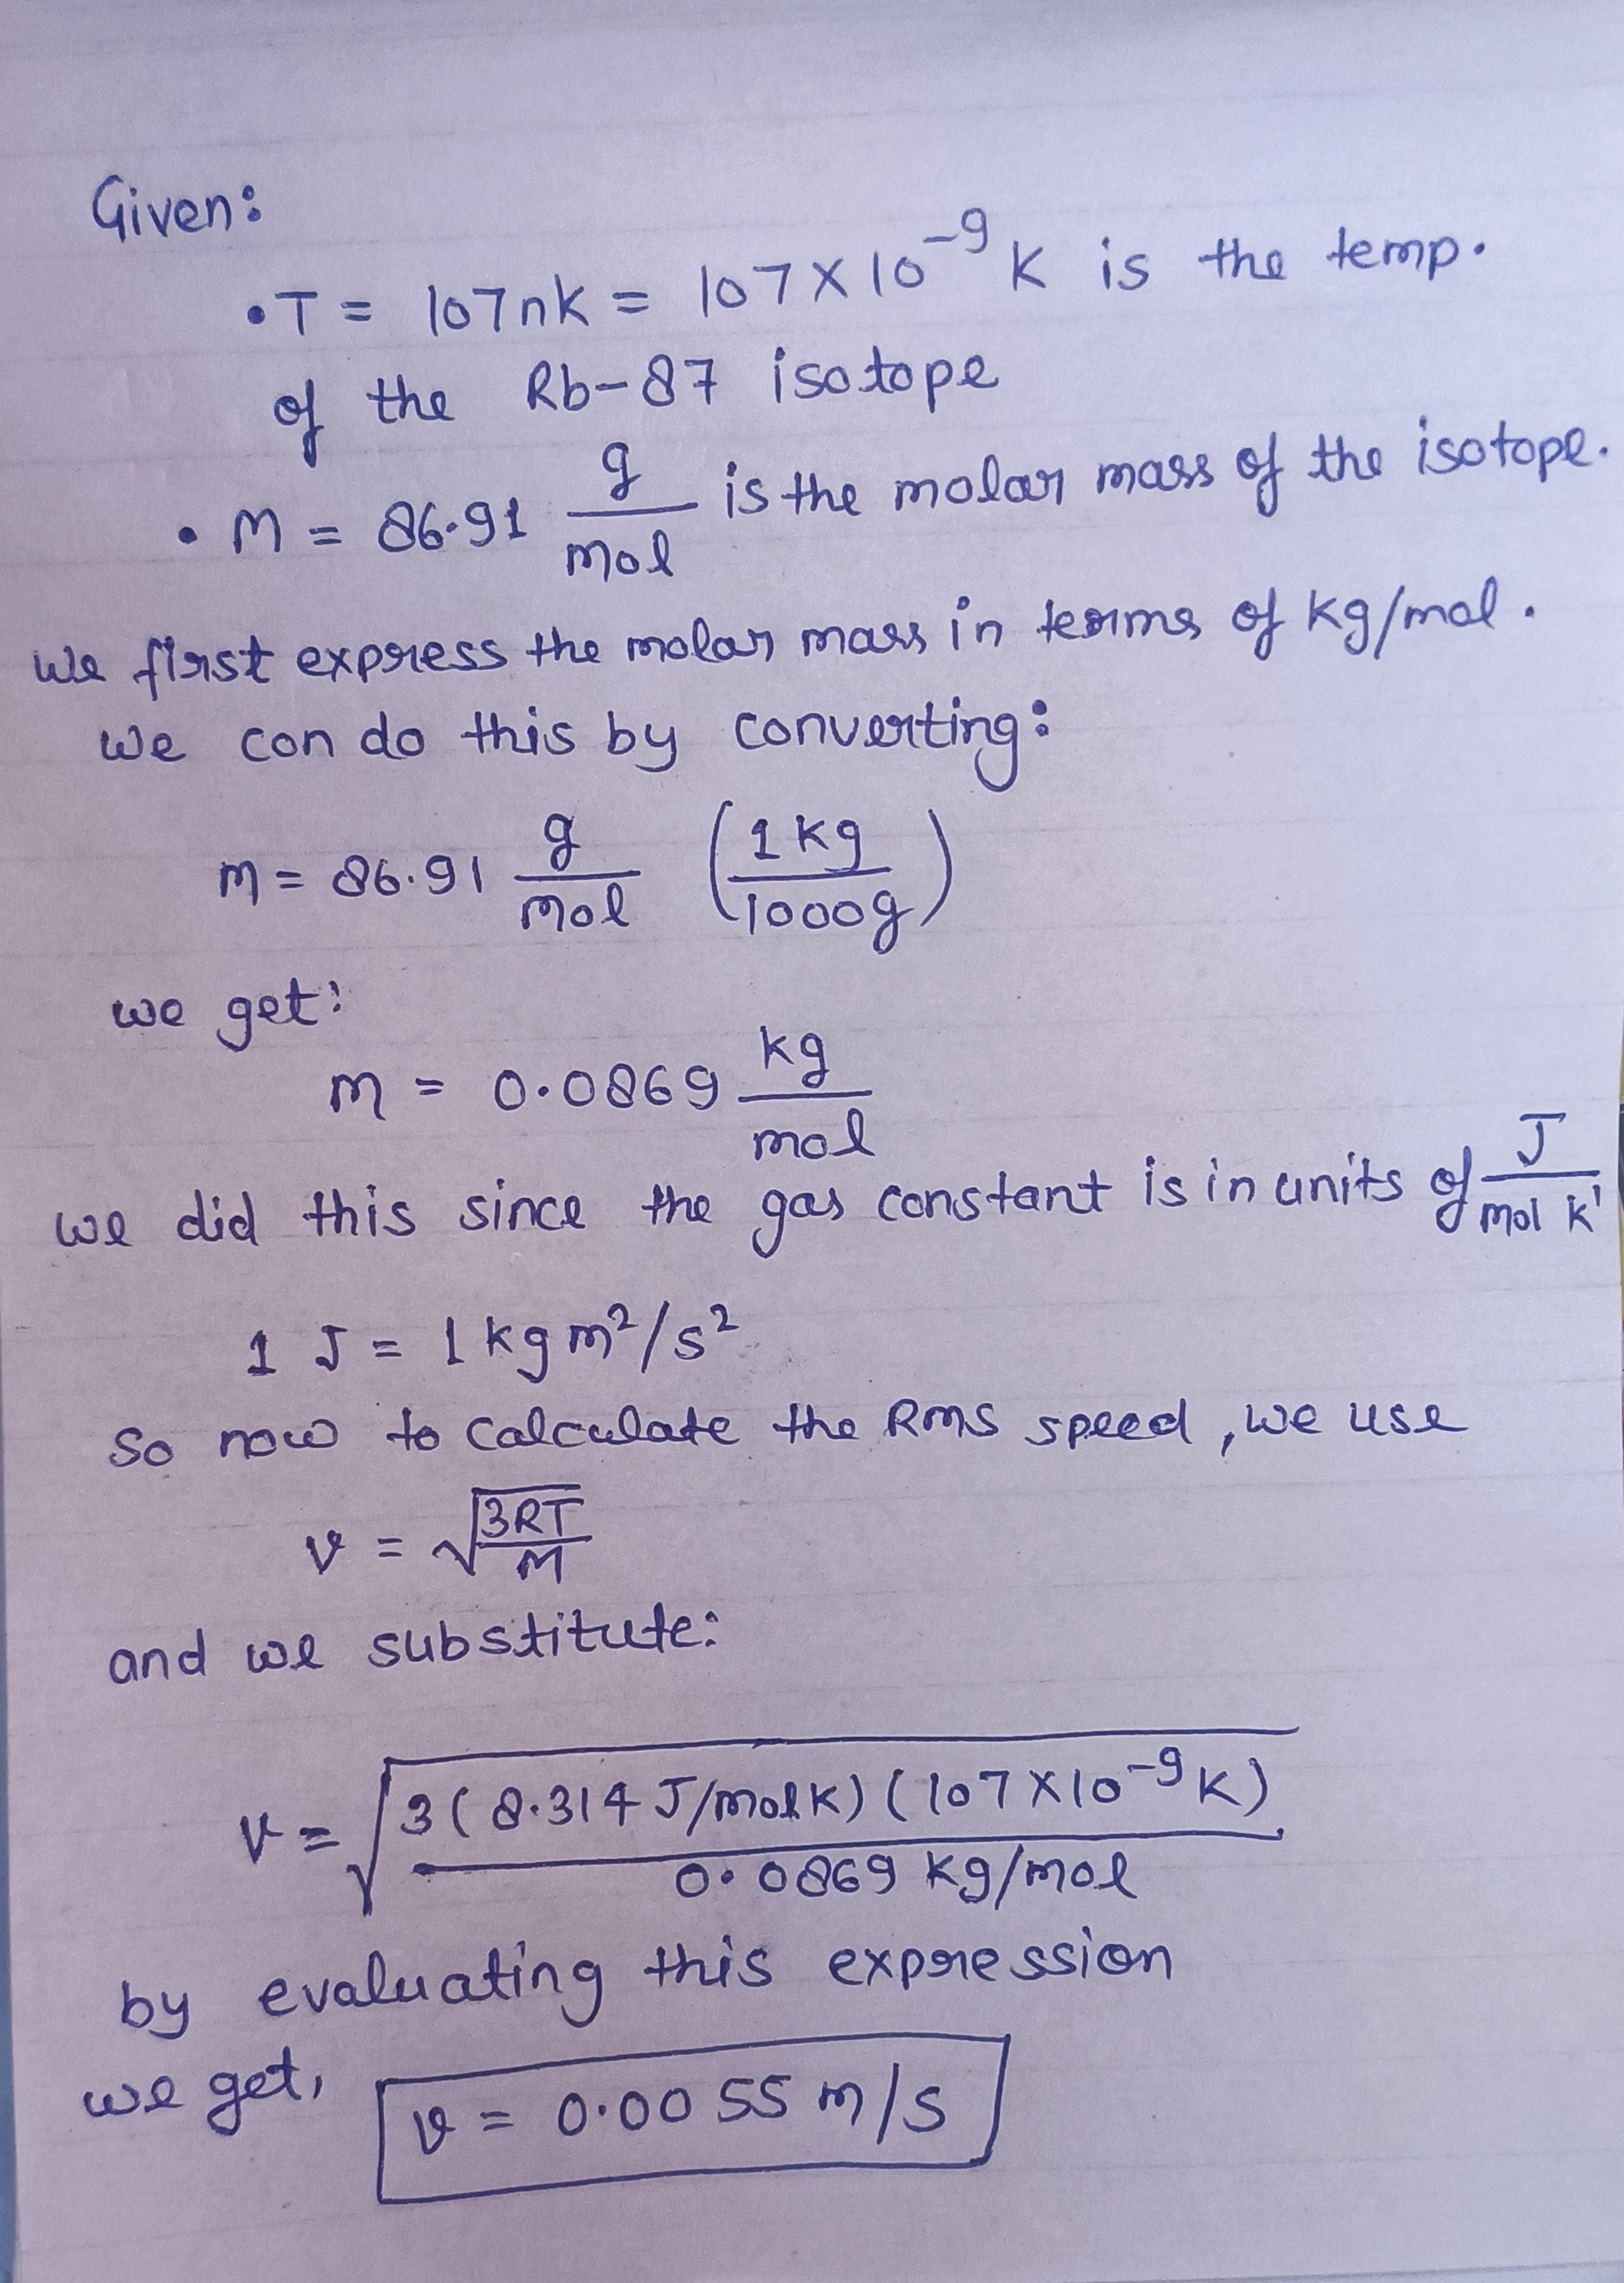 Given:
• T = 107nK = 107 × 10⁻⁹ K is the temp.
of the Rb-87 isotope
• M = 86.91 g/mol is the molar mass of the isotope.
we first express the molar mass in terms of kg/mol.
we con do this by converting:
m = 86.91 g/mol (1 kg/1000g)
we get:
m = 0.0869 kg/mol
we did this since the gas constant is in units of J/mol K
1 J = 1 kg m²/s²
so now to calculate the Rms speed, we use
v = √(3RT/M)
and we substitute:
v = √(3(8.314 J/mol K)(107 × 10⁻⁹ K)/0.0869 kg/mol)
by evaluating this expression
we get, v = 0.0055 m/s